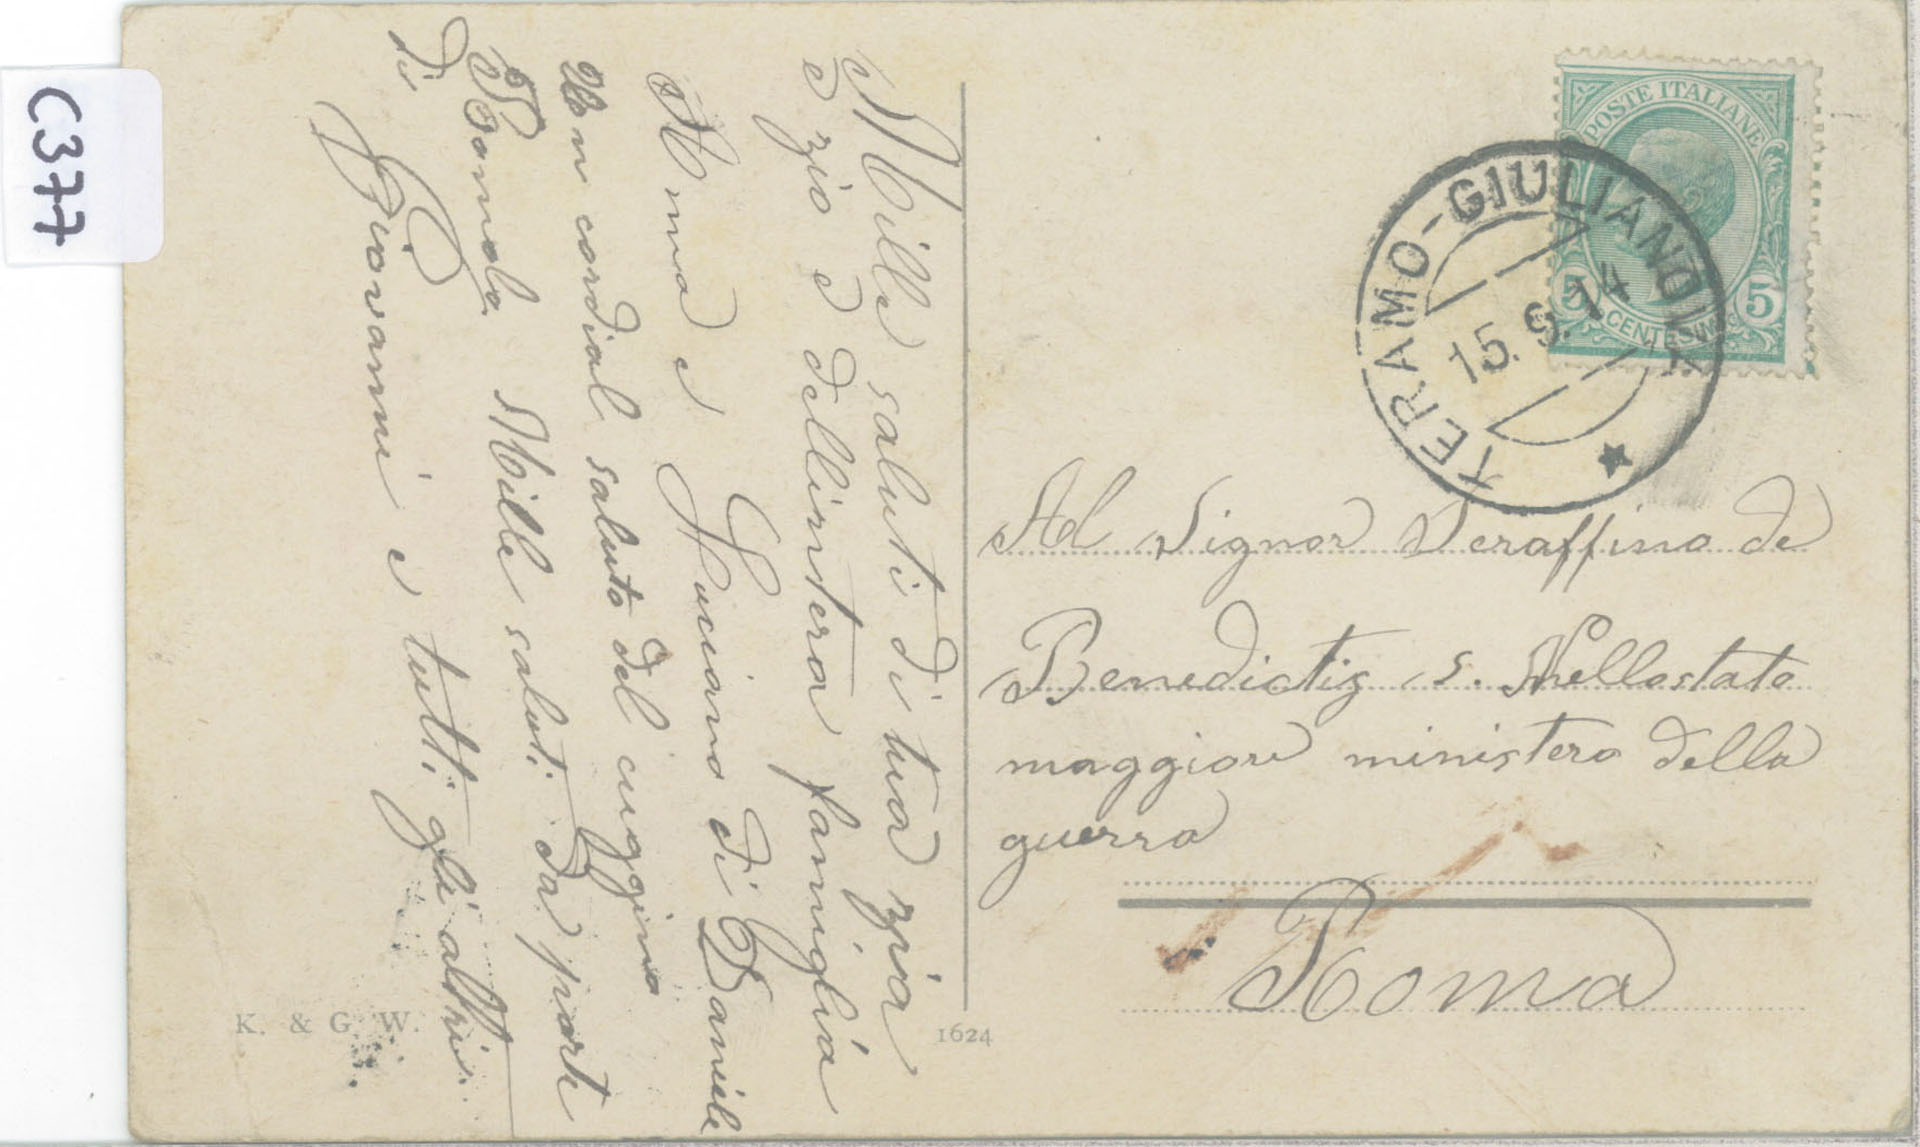 C377
Mille saluti di tua zia
e zio e dell'intera famiglia
Anna e Luciano di Daniele
Un cordial saluto del cuggino
Mille saluti da parte
di Giovanni e tutti gli altri.
K. & G. W.
1624
POSTE ITALIANE
5 CENTESIMI 5
TERAMO-GIULIANOVA
15.9.14
Al Signor Seraffino de
Benedictis S. Nellostato
maggiore ministero della
guerra
Roma